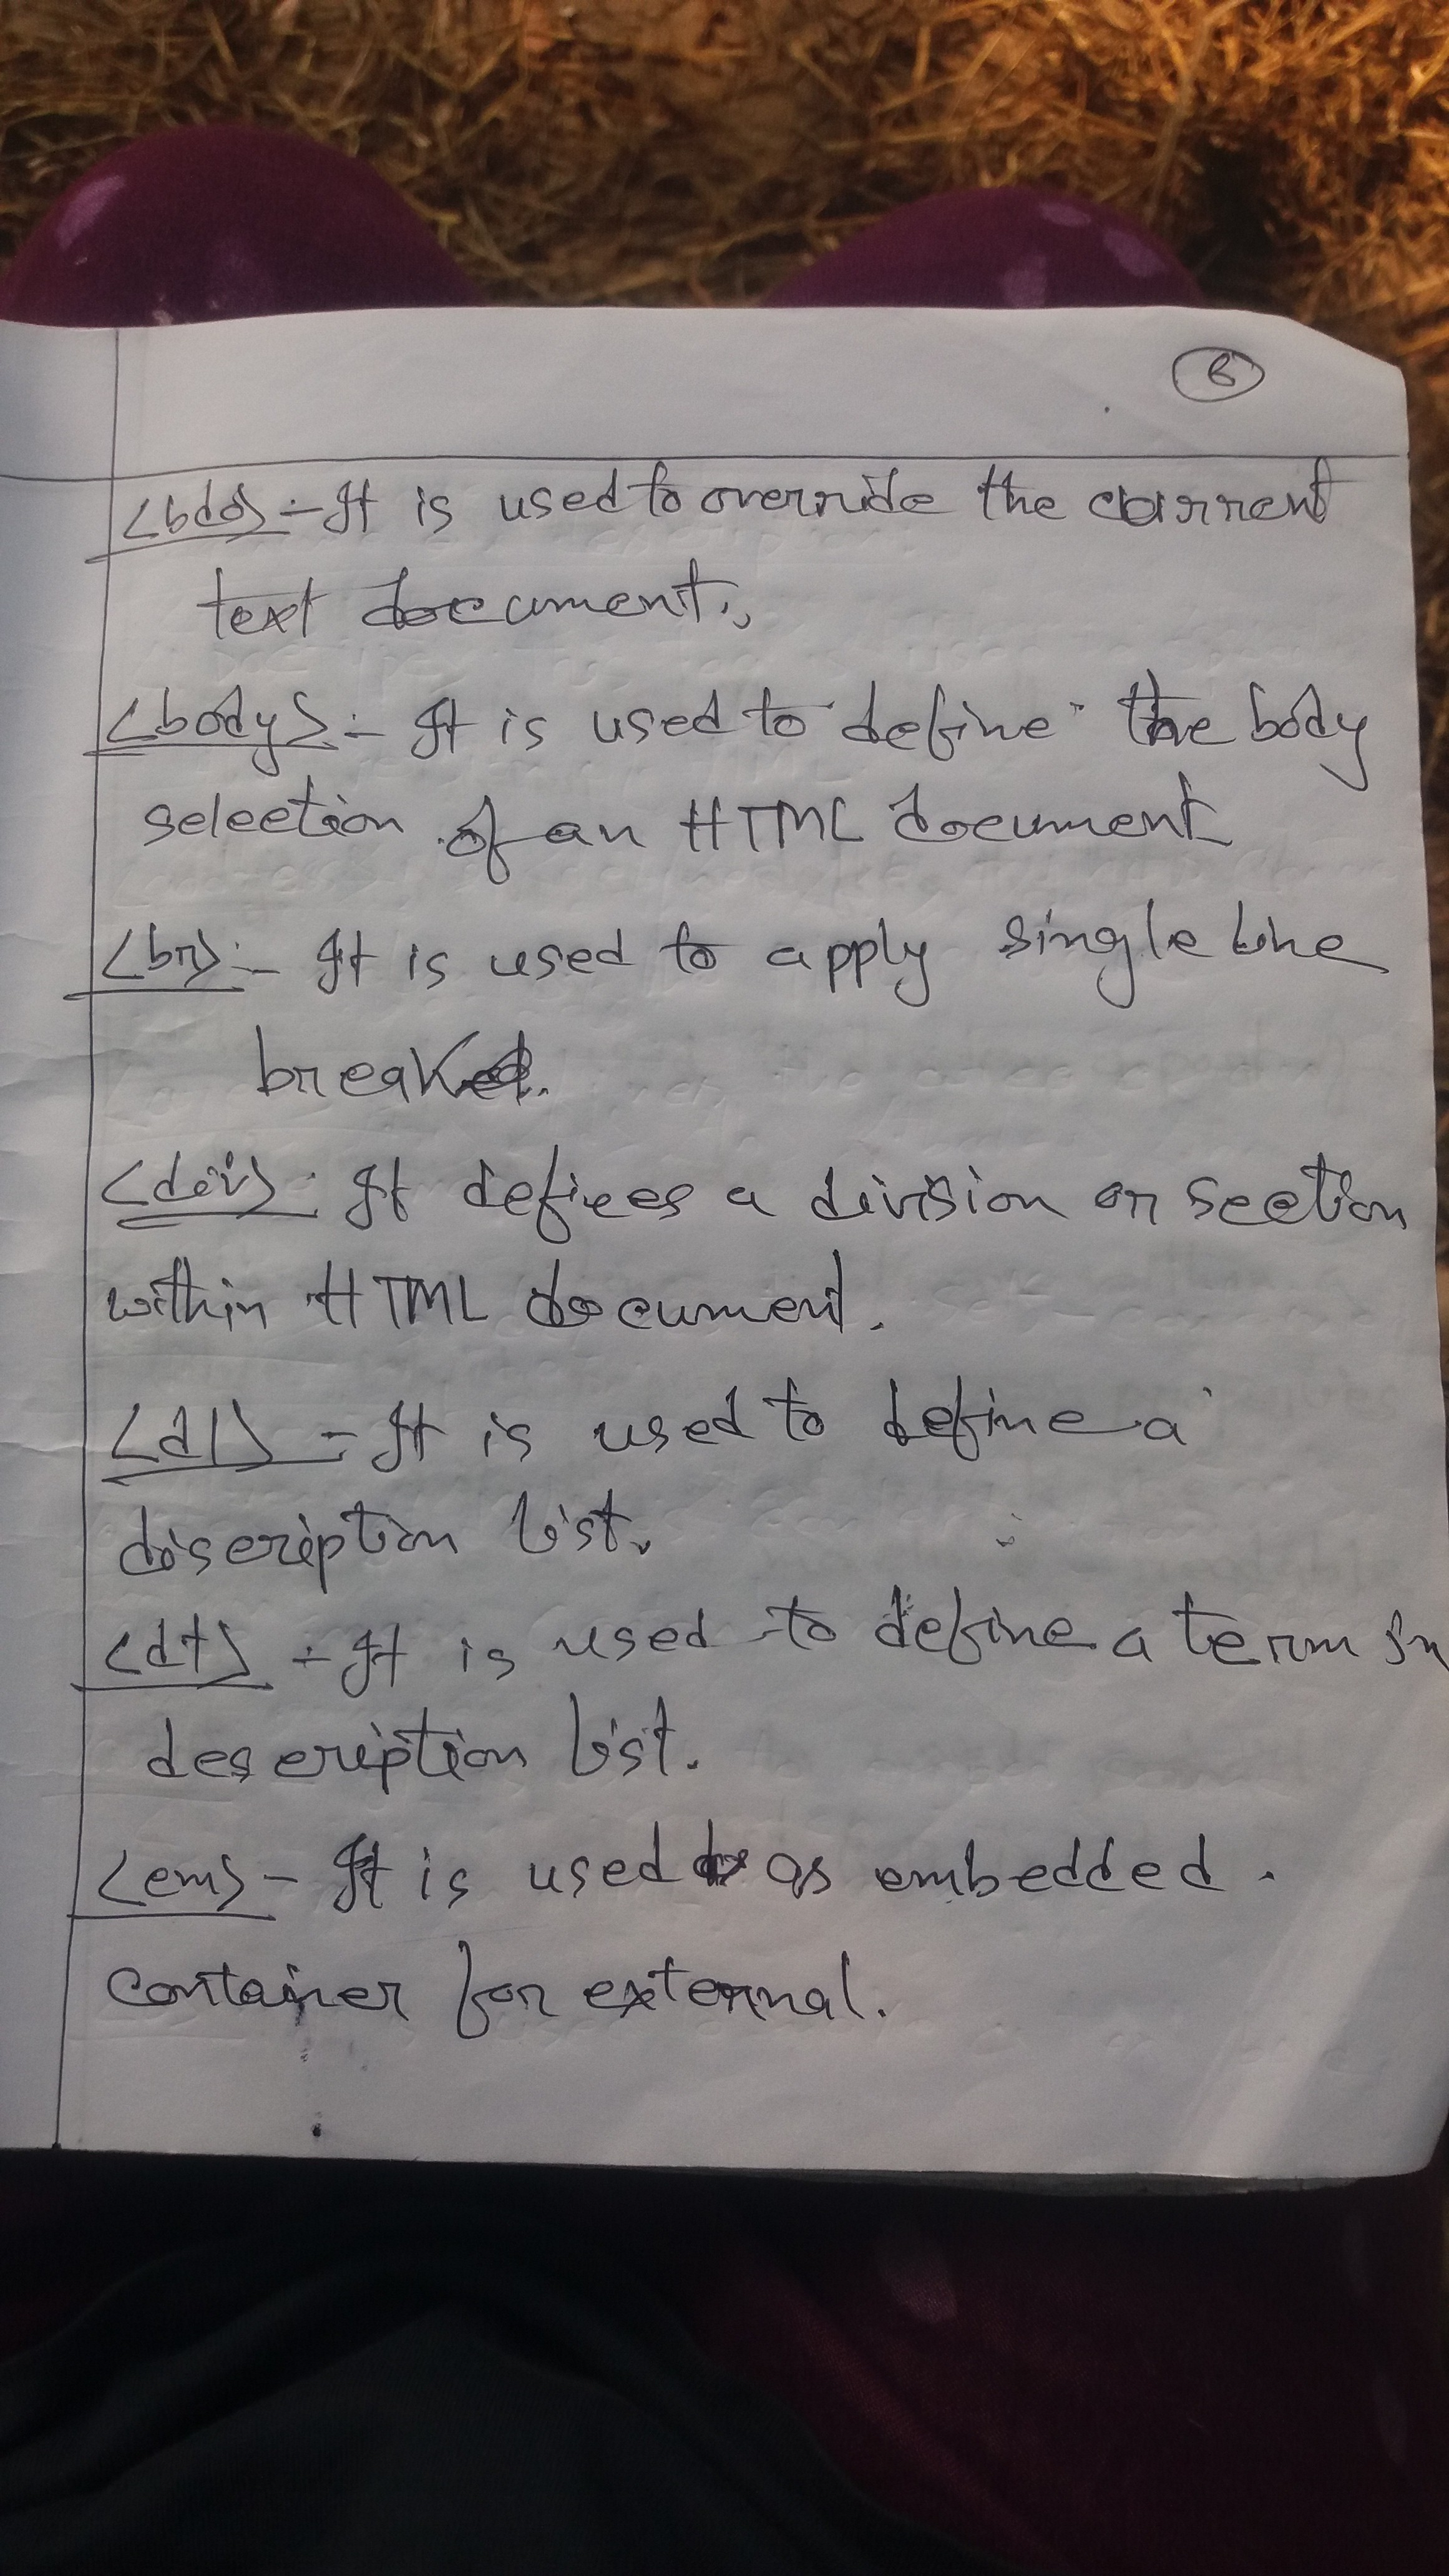 6
<bdo> :- It is used to override the current
text document.
<body> :- It is used to define the body
selection of an HTML document
<br> :- It is used to apply single line
break
<div> : It defines a division or section
within HTML document.
<dl> :- It is used to define a
discription list.
<dt> :- It is used to define a term in
description list.
<em> - It is used as embedded.
container for external.